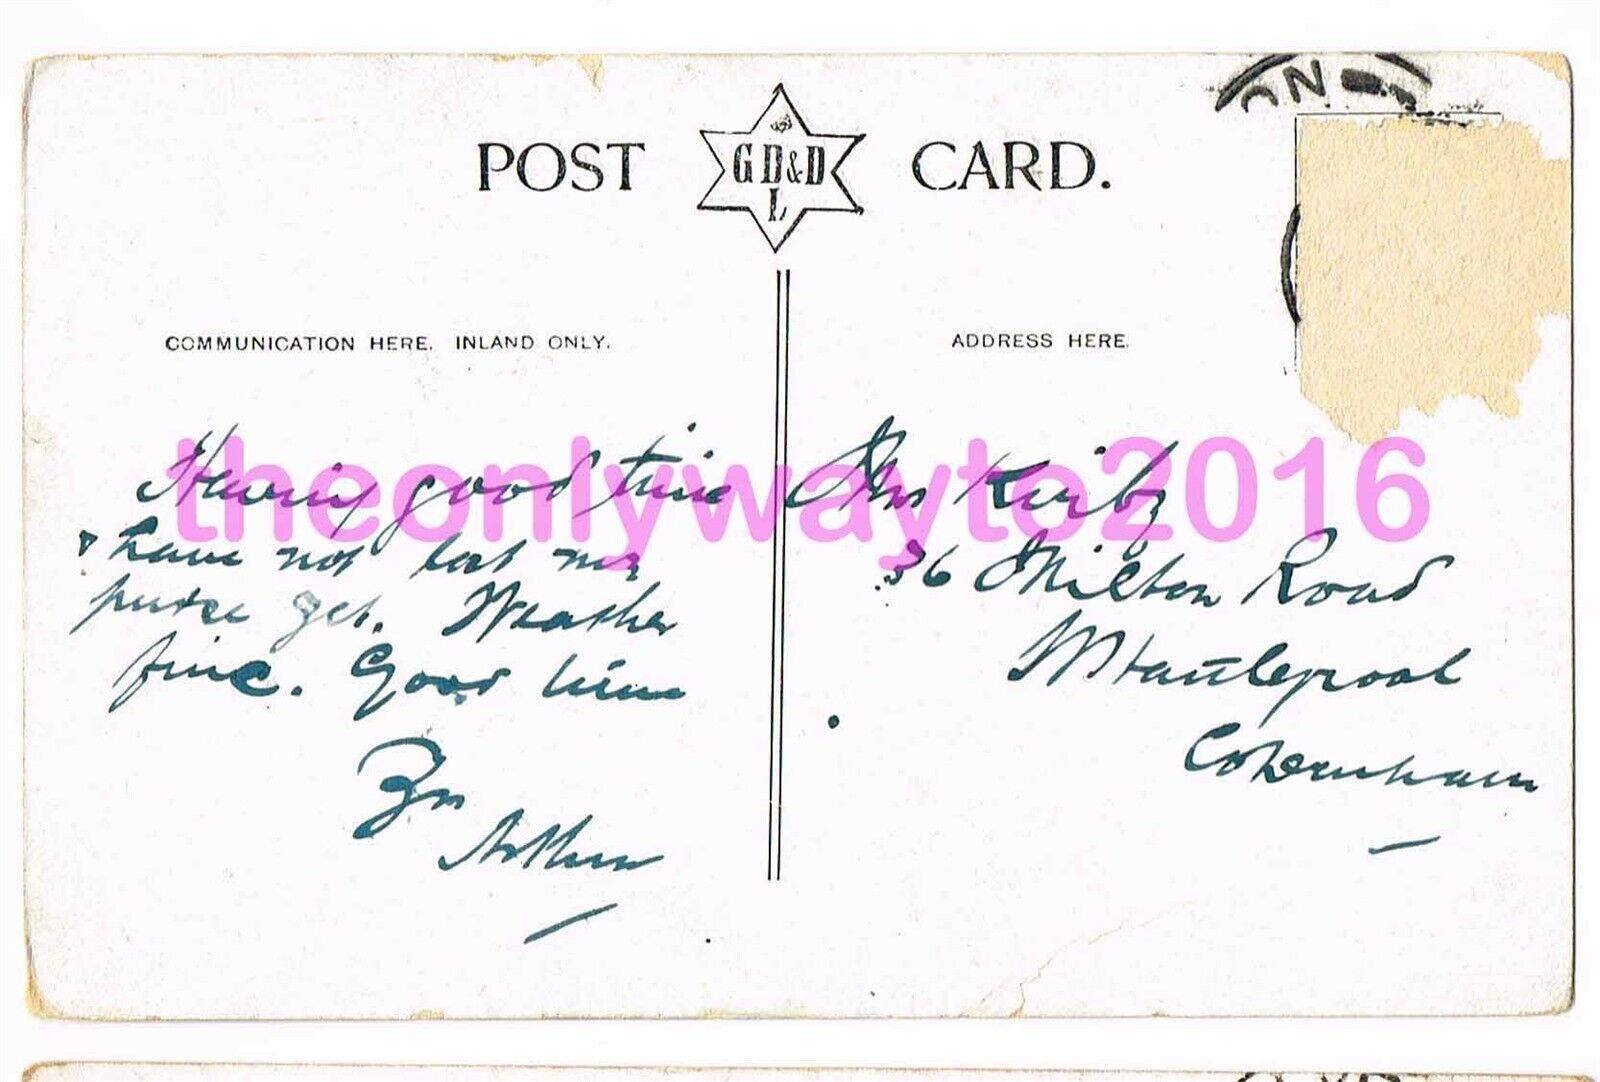 ON
POST GD&D L CARD.
COMMUNICATION HERE. INLAND ONLY.
ADDRESS HERE.
theonlywayto2016
Having good time
& have not lost my
purse yet. Weather
fine. Good time
Arthur
Mrs Kirby
36 Milton Road
W Hartlepool